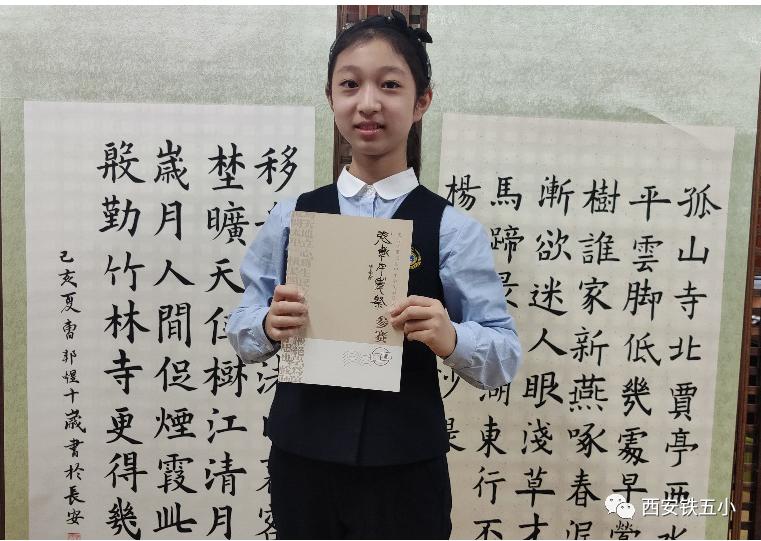 孤山寺北賈亭西水
平雲脚低幾處早鶯
樹誰家新燕啄春泥
漸欲迷人眼淺草才
馬蹄最湖東行不
楊沙堤
移暮客
埜曠天低樹江清月
歲月人間促煙霞此
殷勤竹林寺更得幾
己亥夏曹郭煜十歲書於長安
西安铁五小